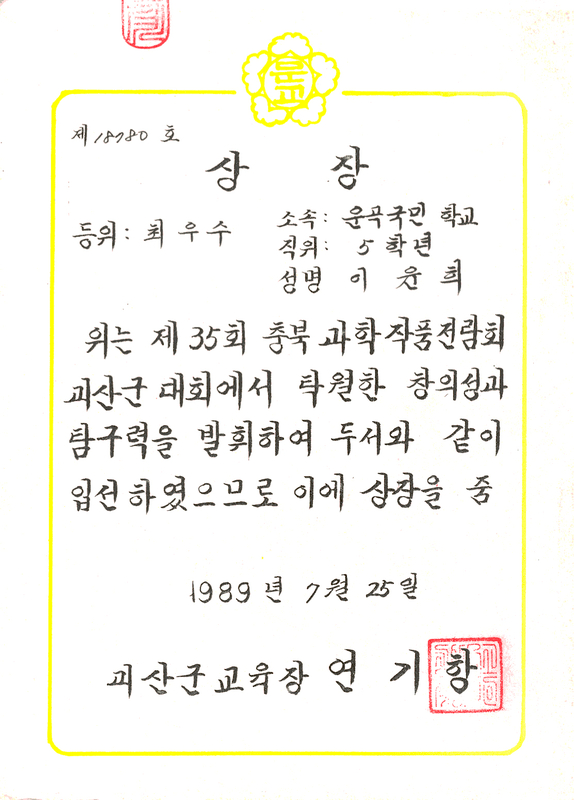 문교
제 18780 호
상 장
등위: 최 우 수
소속: 운곡국민 학교
직위: 5 학 년
성명 이 윤 희
위는 제 35회 충북 과학작품전람회
괴산군 대회에서 탁월한 창의성과
탐구력을 발휘하여 두서와 같이
입선하였으므로 이에 상장을 줌
1989 년 7 월 25 일
괴산군교육장 연 기 항